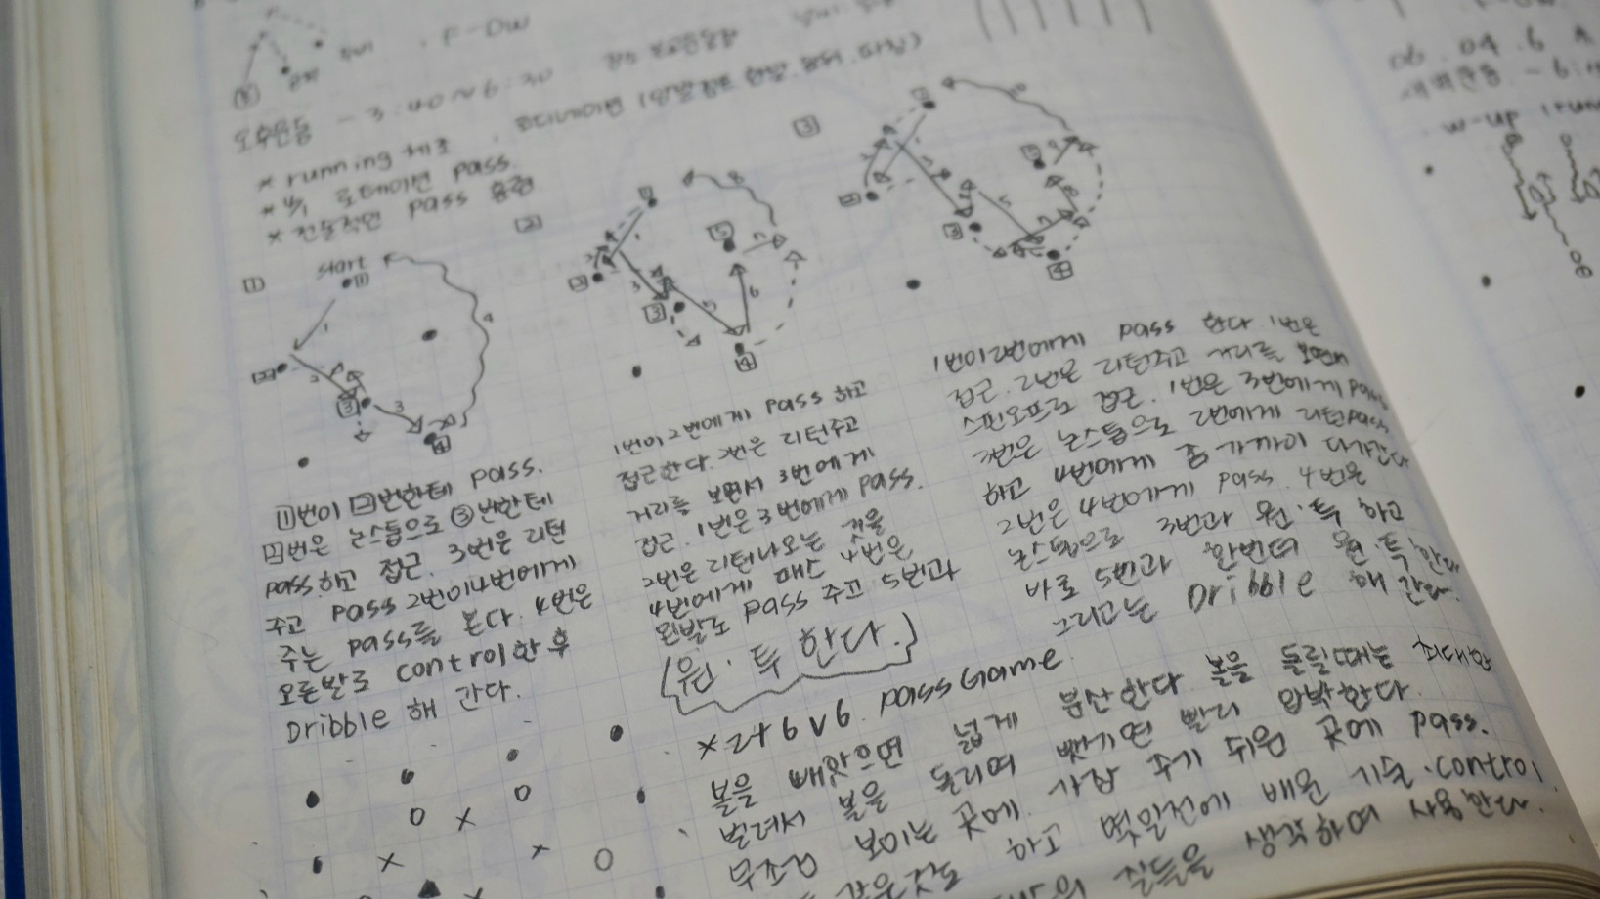 F-DW
오후운동 - 3:40~6:30
* running 체조
* 4/1 로테이션 pass.
* 전술적인 pass 훈련
1
start
2
3
1번이 2번한테 pass.
2번은 논스톱으로 3번한테
pass.하고 접근. 3번은 리턴
주고 pass 2번이 4번에게
주는 pass를 본다. 4번은
오른발로 control한 후
Dribble 해 간다.
1번이 2번에게 pass 하고
접근한다. 2번은 리턴주고
거리를 보면서 3번에게
접근. 1번은 3번에게 pass.
2번은 리턴나오는 것을
4번에게 패스 4번은
왼발로 pass 주고 5번과
(원·투 한다.)
1번이 2번에게 pass 한다. 1번은
접근. 2번은 리턴주고 거리를 보면서
스핀오프로 접근. 1번은 3번에게 pass
3번은 논스톱으로 2번에게 리턴pass
하고 4번에게 좀 가까이 다가간다
2번은 4번에게 pass. 4번은
논스톱으로 3번과 원·투 하고
바로 5번과 한번더 원·투 한다
그리고는 Dribble 해 간다.
* 2+6 v 6. pass Game.
볼을 빼앗으면 넓게 분산한다. 볼을 돌릴때는 최대한
벌려서 볼을 돌리며 뺏기면 빨리 압박한다.
무조건 보이는 곳에. 가장 주기 쉬운 곳에 pass.
같은것도 하고 몇일전에 배운 기술·control
들을 생각하며 사용한다.
06.04.6
새벽운동 - 6:
w-up